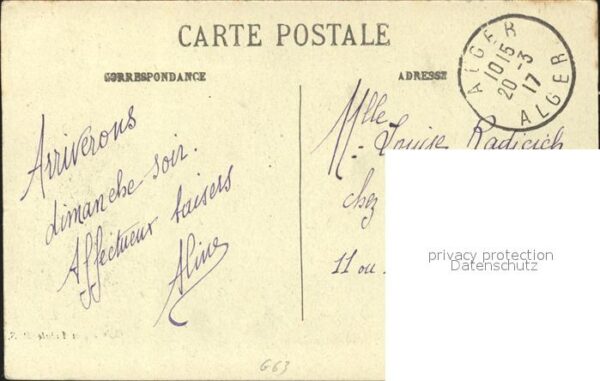 CARTE POSTALE
CORRESPONDANCE
ADRESSE
ALGER
10 15
20 -3
17
ALGER
Arriverons
dimanche soir.
Affectueux baisers
Aline
Mlle
Louise Radicich
chez
11 ou
privacy protection
Datenschutz
G63